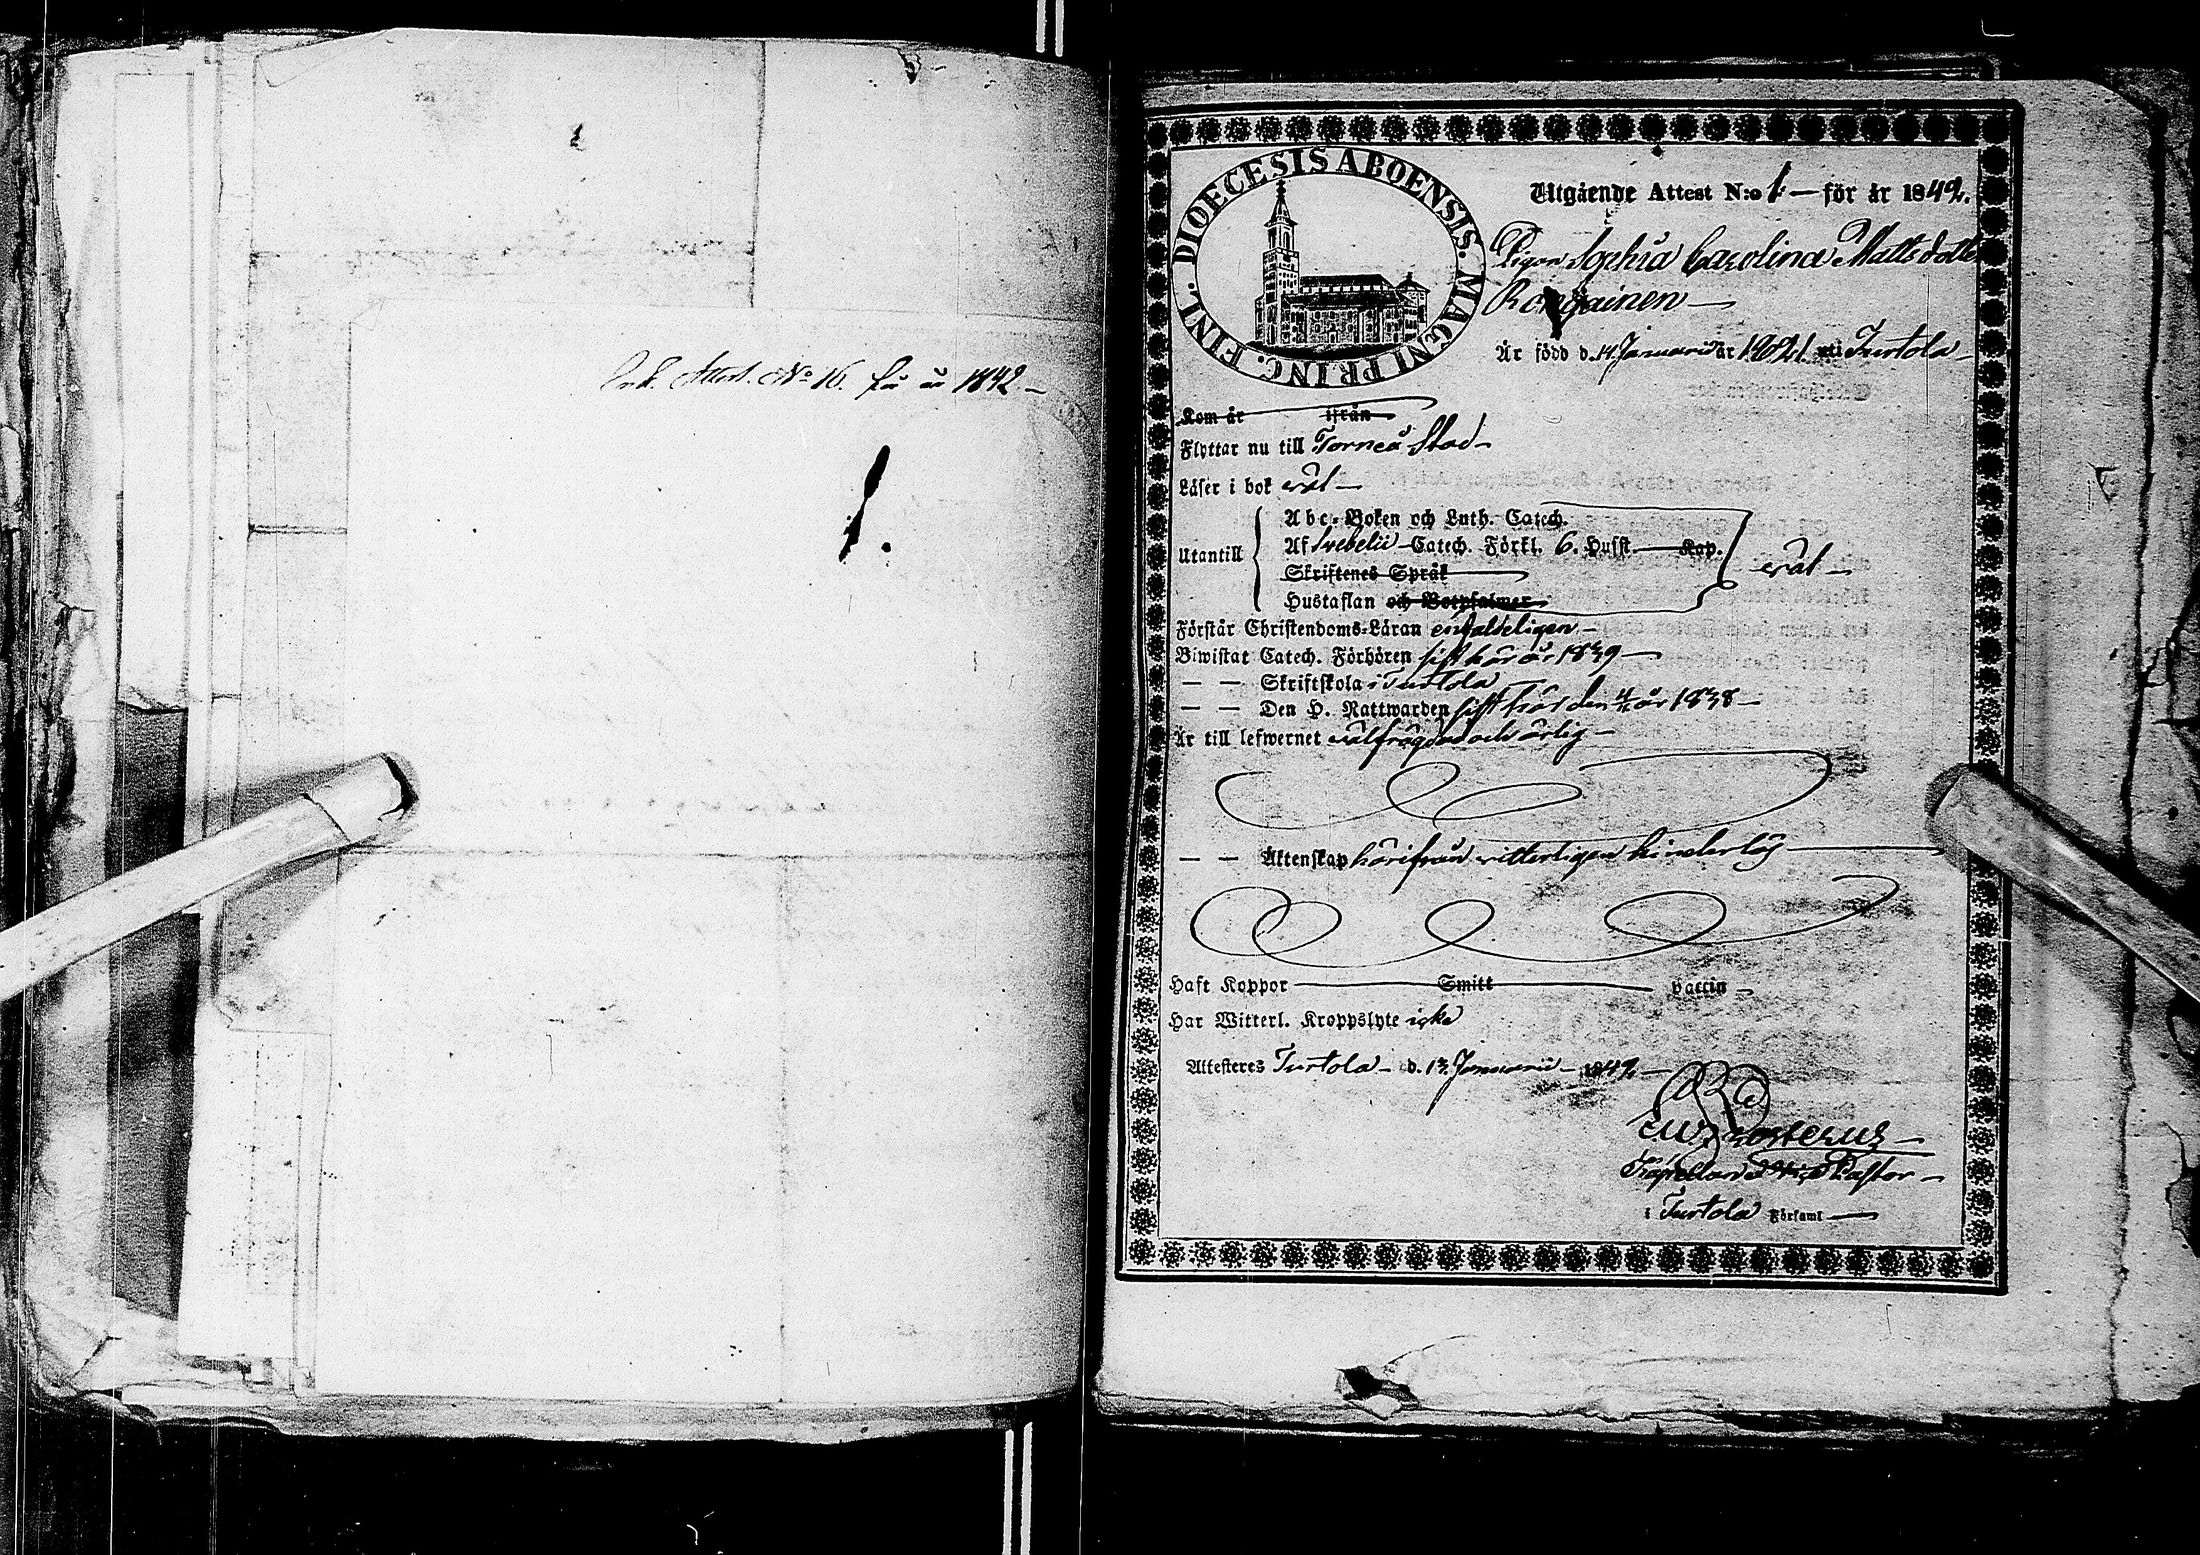 Ink. Attest. No 16. för år 1842 —
1.
DIOECESIS ABOENSIS. MAGNI PRINC. FINL.
Utgående Attest N:o 1 — för år 1842.
Pigan Sophia Carolina Mattsdotter
— 
Är född d. 14 Januarii år 1821 uti Turtola —
Kom år ifrån
Flyttar nu till Torneå Stad —
Läser i bok väl —
Utantill
Abc-Boken och Luth. Catech.
Af Svebelii Catech. Förkl. 6. Hufst. — Kap.
väl —
Skriftenes Språk
Hustaflan och Botpsalmer
Förstår Christendoms-Läran enfaldeligen —
Biwistat Catech. Förhören sist här år 1839 —
— — Skriftskola i Turtola —
— — Den H. Nattwarden sist här den år 1838 —
Är till lefwernet välfrägdad och ärlig —
— — Äktenskap härifrån vitterligen hinderlös —
Haft Koppor — Smitt — Vaccin —
Har Witterl. Kroppslyte icke
Attesteres Turtola — d. 13 Januarii — 1842 —
Kapellan och Vice Pastor —
i Turtola Församl —